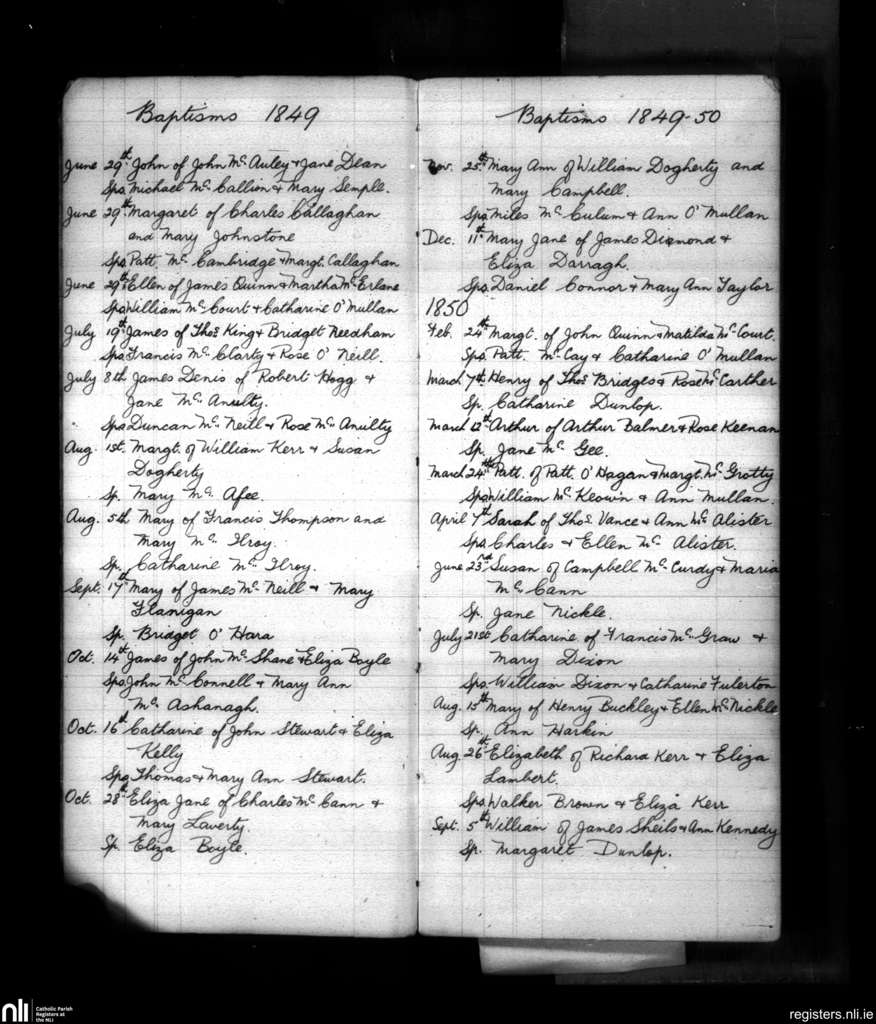 Baptisms 1849
June 29th John of John Mc Auley & Jane Dean
Sps. Michael Mc Callion & Mary Semple.
June 29th Margaret of Charles Callaghan
and Mary Johnstone
Sps. Patt. Mc Cambridge & Margt. Callaghan
June 29th Ellen of James Quinn & Martha Mc Erlane
Sps. William Mc Court & Catharine O' Mullan
July 19th James of Thos. King & Bridget Needham
Sps. Francis Mc Clarty & Rose O' Neill.
July 8th James Denis of Robert Hogg &
Jane Mc Anulty.
Sps. Duncan Mc Neill & Rose Mc Anulty
Aug. 1st. Margt. of William Kerr & Susan
Dogherty
Sp. Mary Mc Afee.
Aug. 5th Mary of Francis Thompson and
Mary Mc Ilroy.
Sp. Catharine Mc Ilroy.
Sept. 17th Mary of James Mc Neill & Mary
Flanigan
Sp. Bridget O' Hara
Oct. 14th James of John Mc Shane & Eliza Boyle
Sps. John Mc Connell & Mary Ann
Mc Ashanagh.
Oct. 16th Catharine of John Stewart & Eliza
Kelly
Sps. Thomas & Mary Ann Stewart.
Oct. 28th Eliza Jane of Charles Mc Cann &
Mary Laverty.
Sp. Eliza Boyle.
Baptisms 1849-50
Nov. 25th Mary Ann of William Dogherty and
Mary Campbell.
Sps. Miles Mc Culum & Ann O' Mullan
Dec. 11th Mary Jane of James Diamond &
Eliza Darragh.
Sps. Daniel Connor & Mary Ann Taylor
1850
Feb. 24th Margt. of John Quinn & Matilda Mc Court.
Sps. Patt. Mc Cay & Catharine O' Mullan
March 7th. Henry of Thos. Bridges & Rose Mc Carther
Sp. Catharine Dunlop.
March 12th Arthur of Arthur Balmer & Rose Keenan
Sp. Jane Mc Gee.
March 24th Patt. of Patt. O' Hagan & Margt. Mc Grotty
Sps. William Mc Keowin & Ann Mullan.
April 7th Sarah of Thos. Vance & Ann Mc Alister
Sps. Charles & Ellen Mc Alister.
June 23rd Susan of Campbell Mc Curdy & Maria
Mc Cann
Sp. Jane Nickle.
July 21st Catharine of Francis Mc Graw &
Mary Dixon
Sps. William Dixon & Catharine Fulerton
Aug. 15th Mary of Henry Buckley & Ellen Mc Nickle
Sp. Ann Harkin
Aug 26th Elizabeth of Richard Kerr & Eliza
Lambert.
Sps. Walker Brown & Eliza Kerr
Sept. 5th William of James Sheils & Ann Kennedy
Sp. Margaret Dunlop.
nli
Catholic Parish
Registers at
the NLI
registers.nli.ie